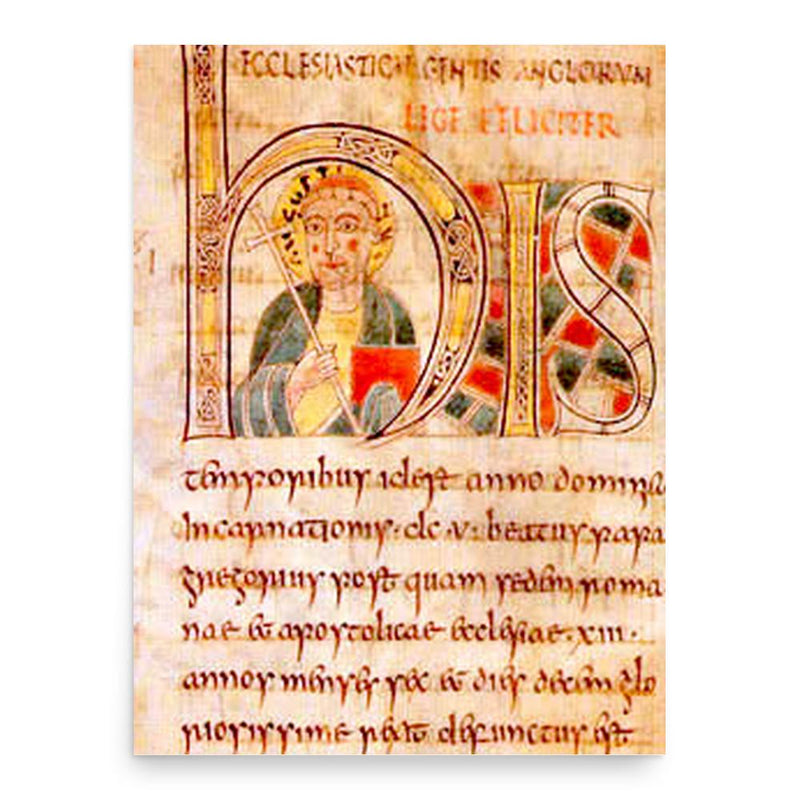 ECCLESIASTICAE GENTIS ANGLORUM
LEGE FELICITER
AUGUSTI
hIS
temporibus idest anno dominica
Incarnationis · dc · v · beatus papa
gregorius post quam sedem roma
nae et apostolicae ecclesiae · xiii ·
annos menses sex et dies decem glo
riosissime rexit defunctus est